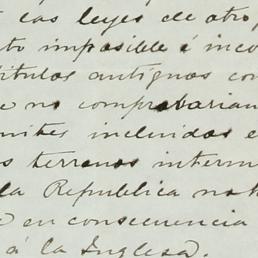 las leyes de otro
imposible é inco
titulos antiguos con
no comprobarian
incluidos e
terrenos interm
la Republica no h
en consecuencia
á la Inglesa.